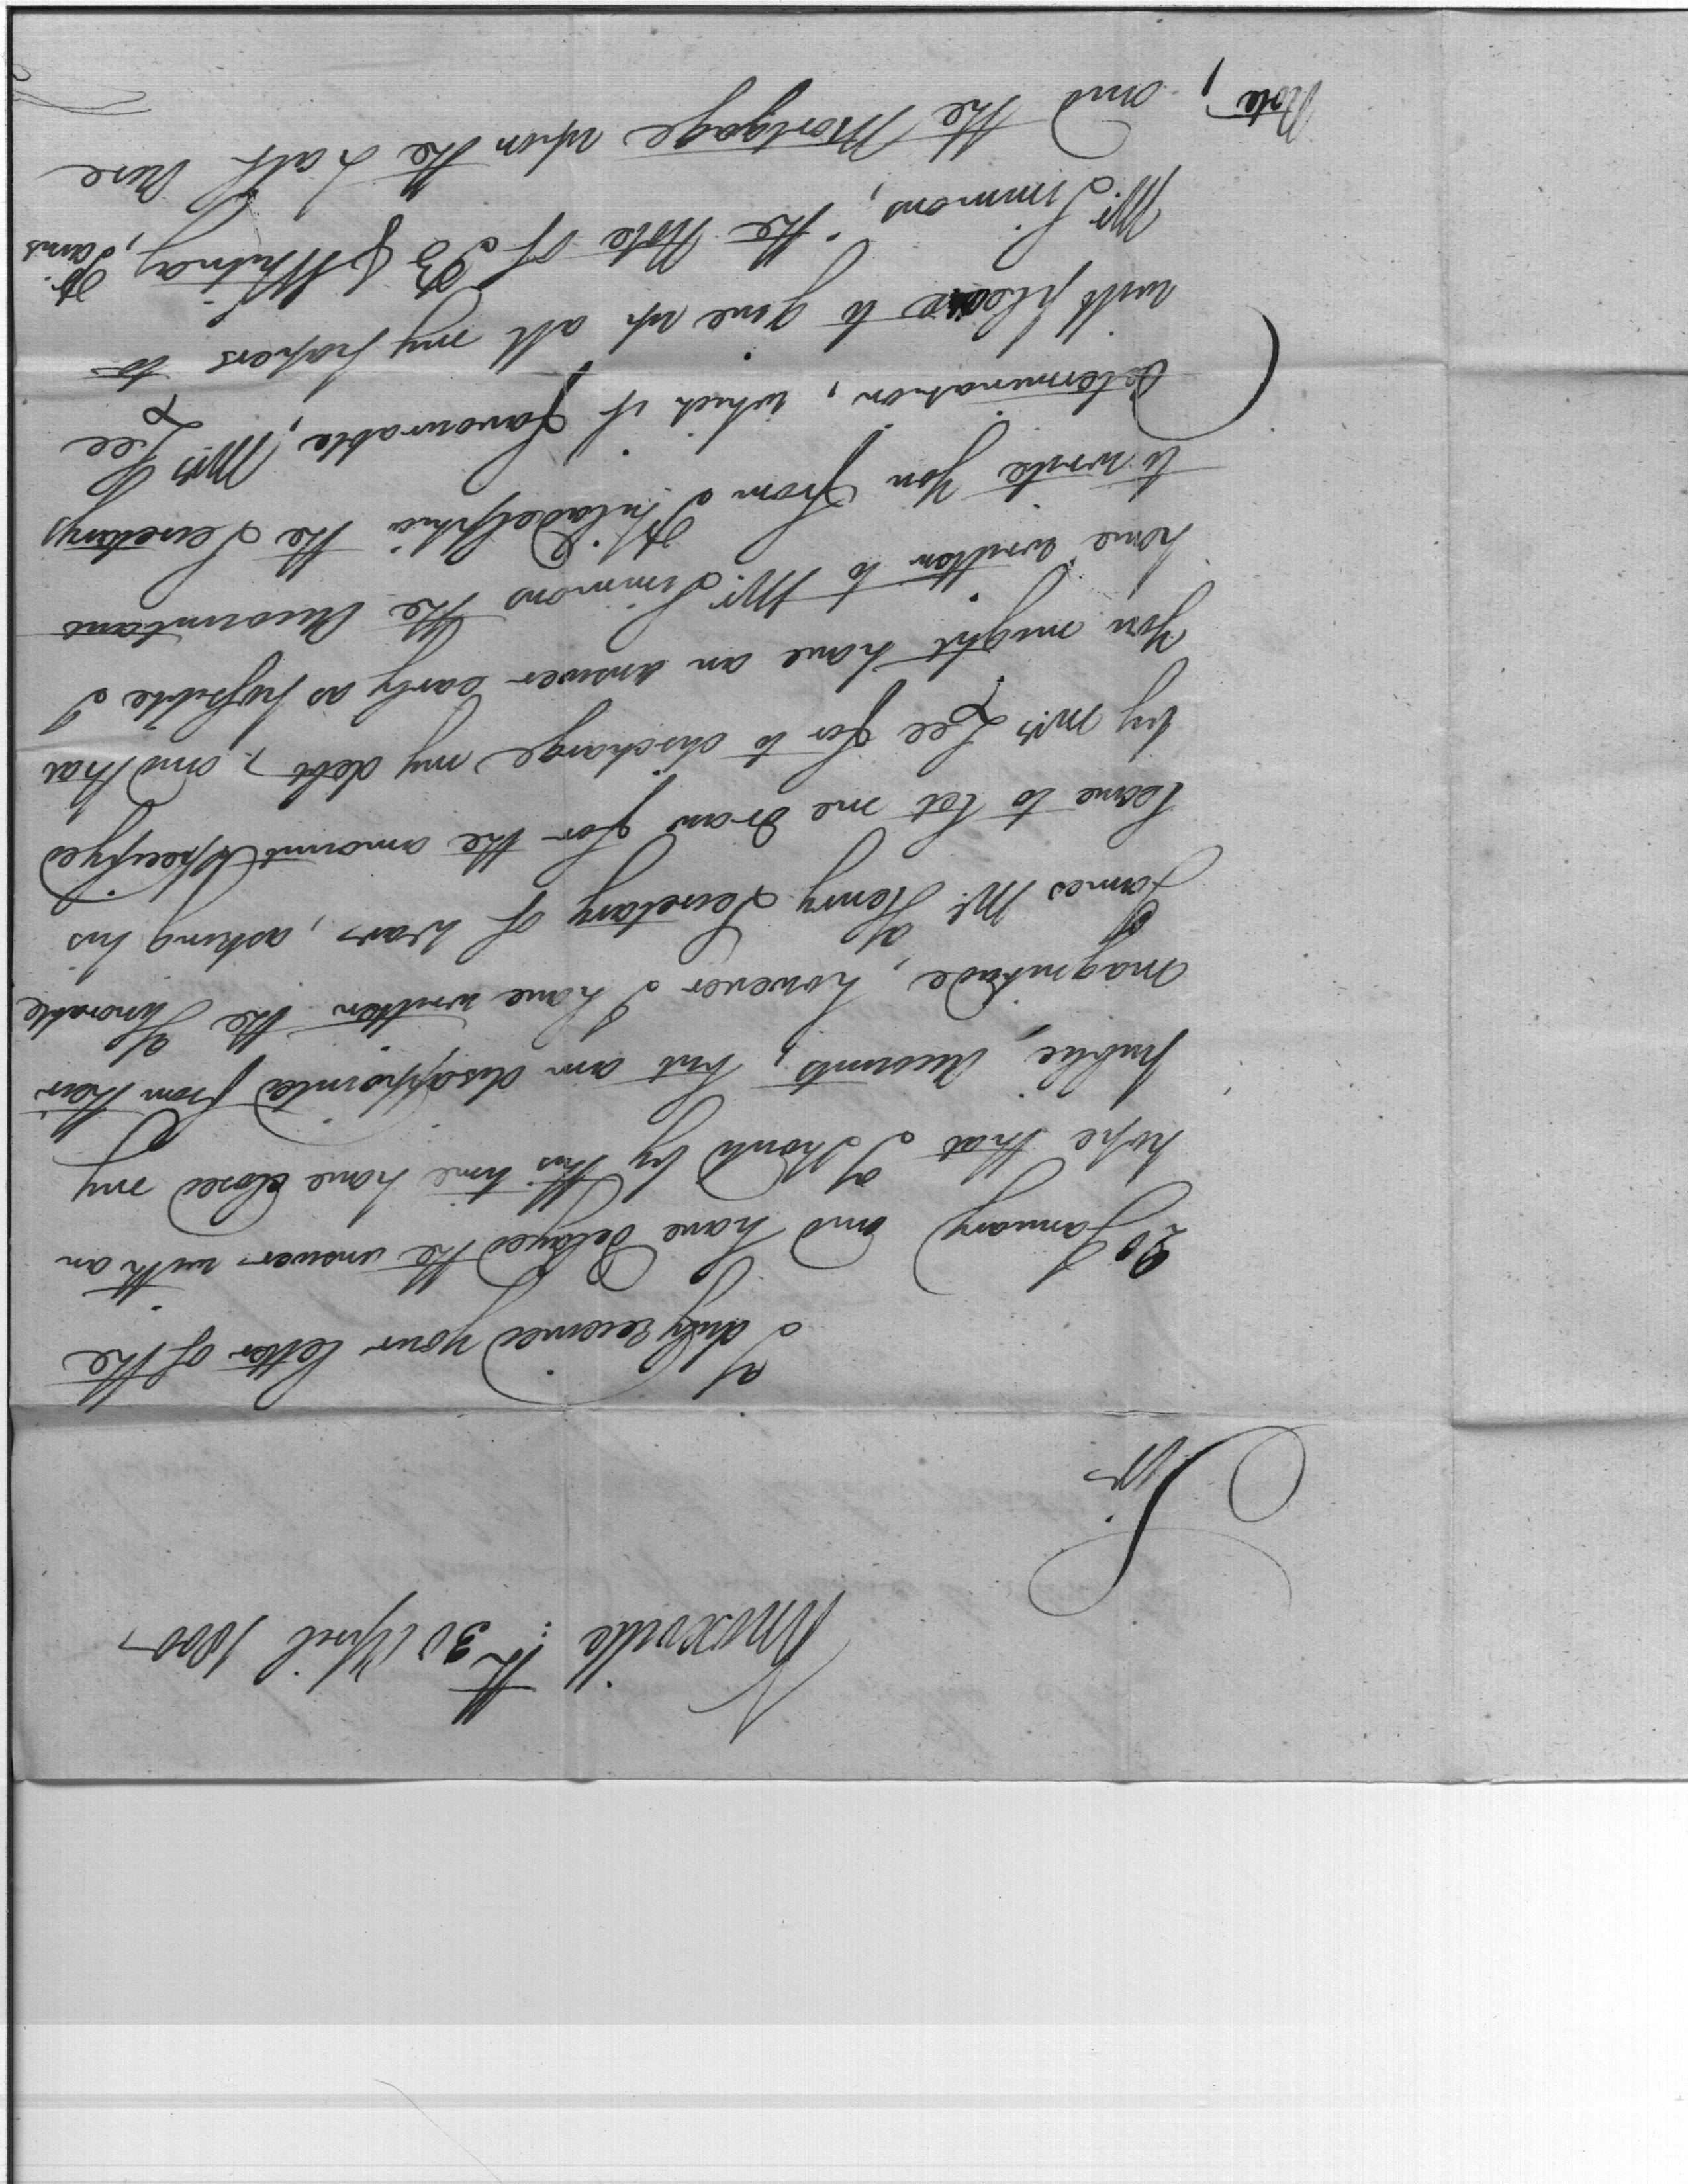 Knoxville the 30 April 1800
Sir
I duly received your letter of the
20 January and have delayed the answer with an
hope that I should by this time have closed my
public Accounts, but am disappointed from their
magnitude, however I have written the Honorable
James Mc Henry Secretary of War, asking his
leave to let me draw for the amount Specifyed
by Mrs Lee for to discharge my debt, and that
You might have an answer early as possible I
have written to Mr. Simmons the Accountant
to write You from Philadelphia the Secretarys
determination, which if favourable, Mrs Lee
will please to give up all my papers to
Mr. Simmons, the Note of B Whitney,
and the Mortgage upon the half
Note,